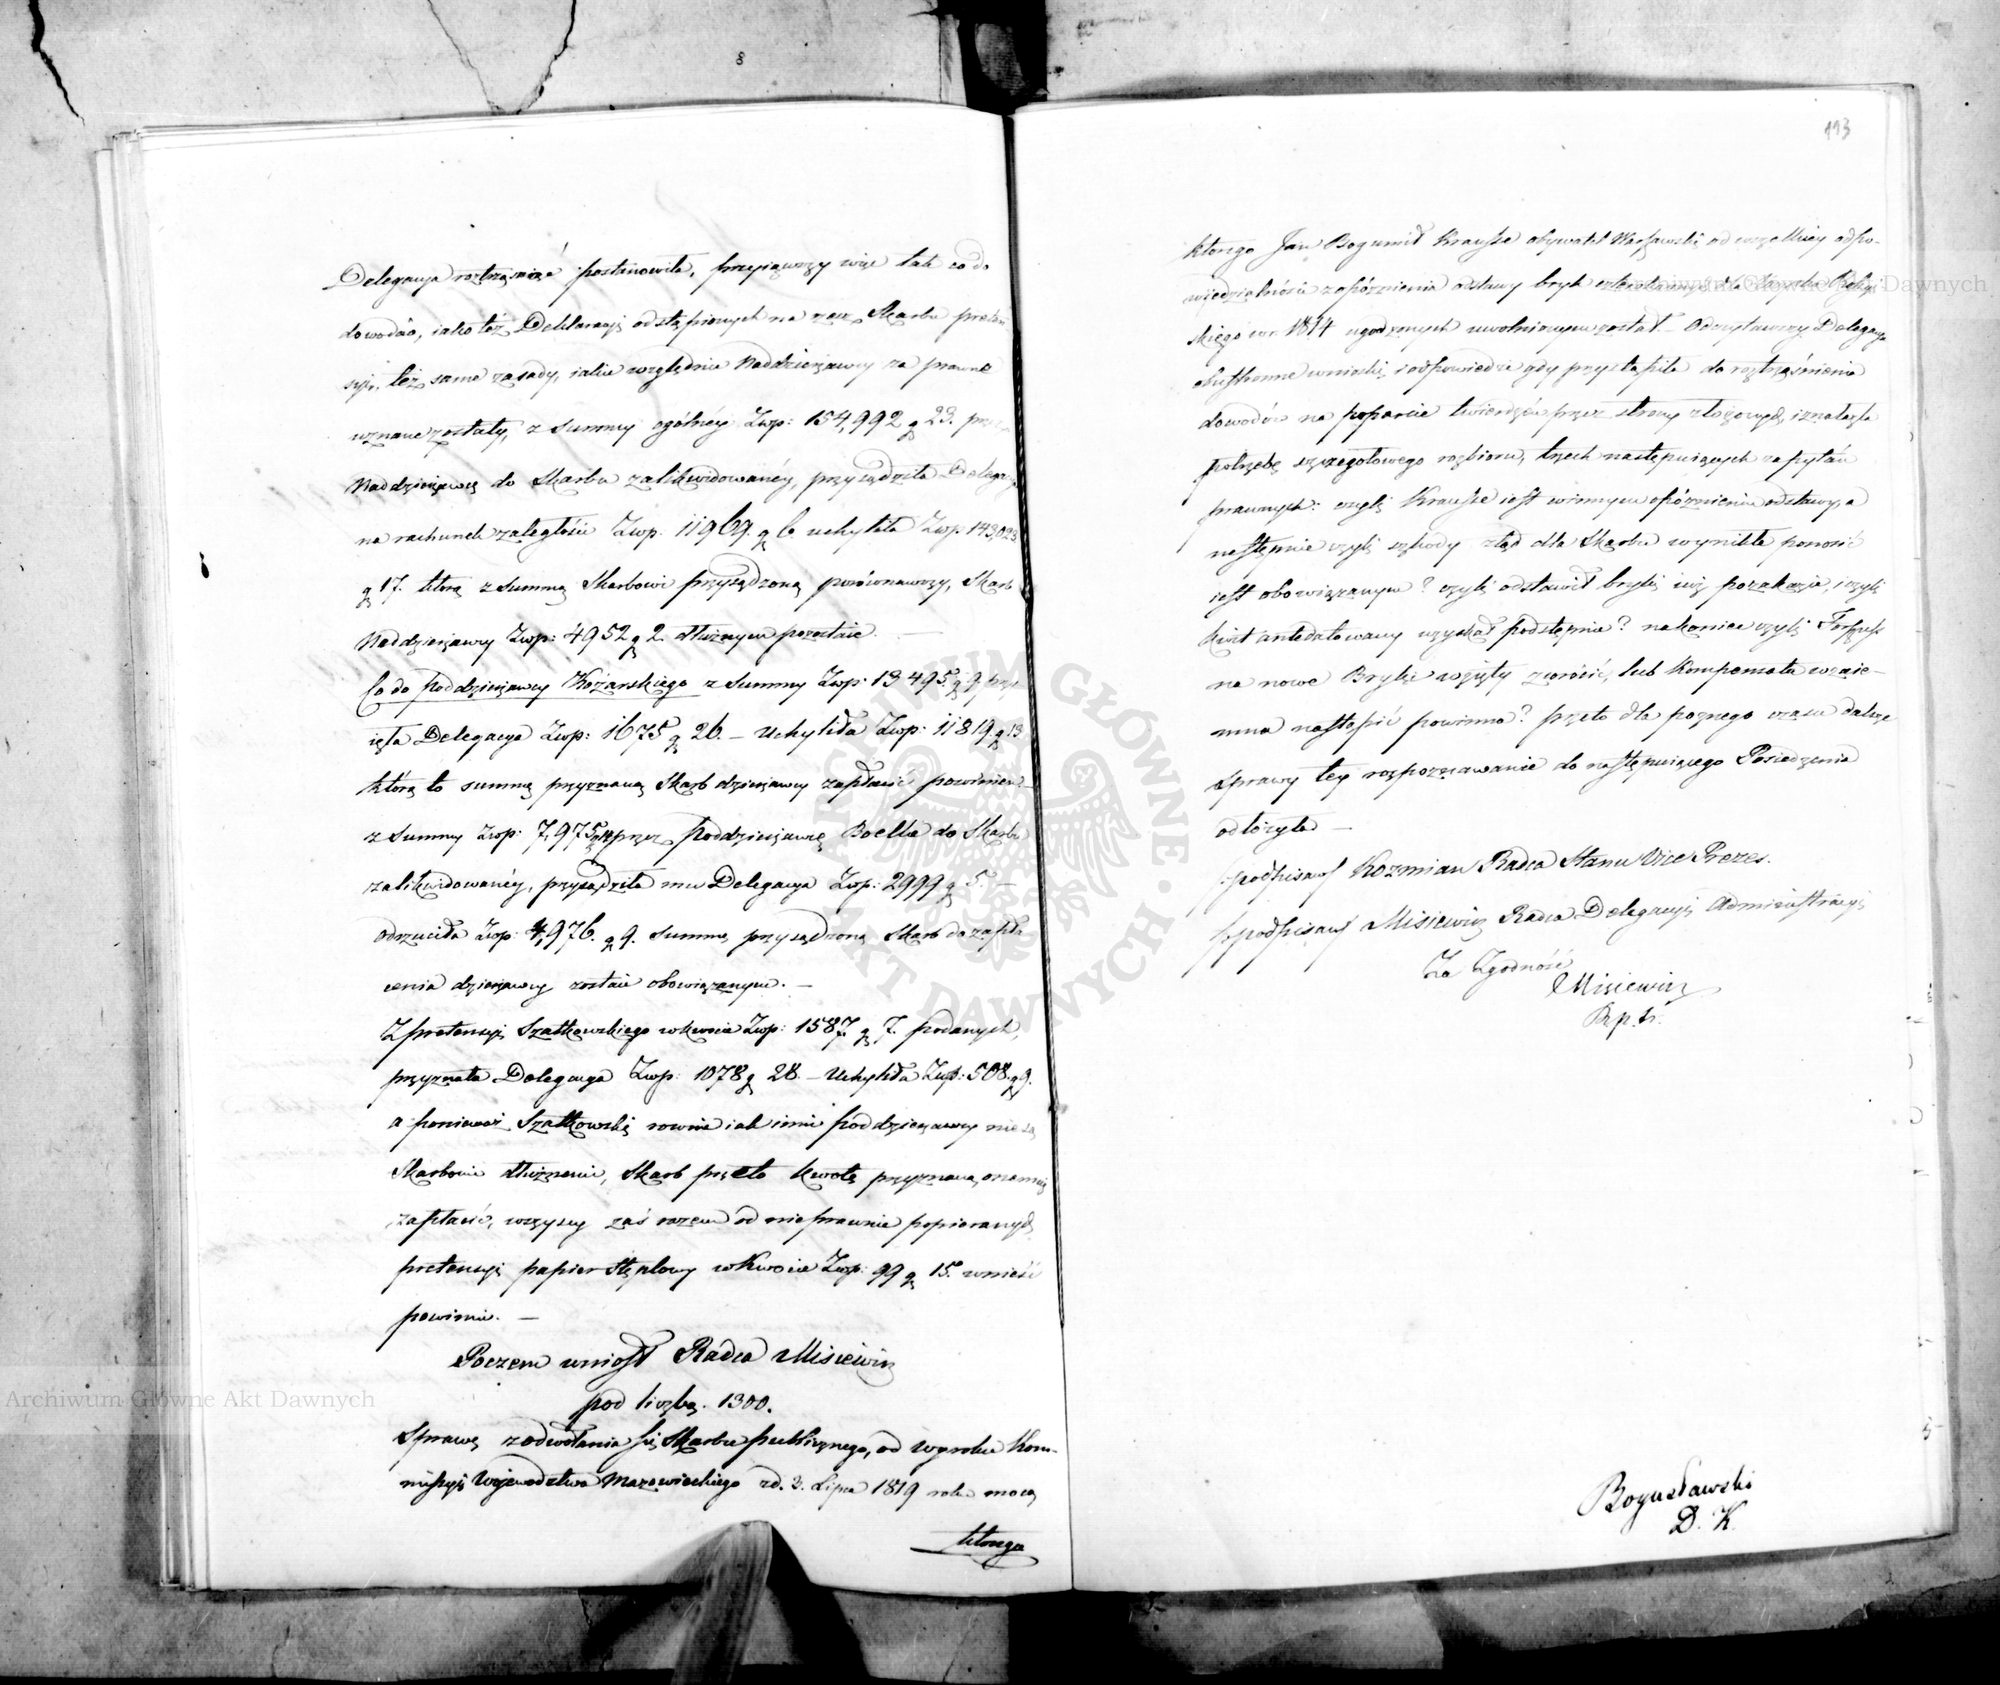 Delegacya roztrząsnąć postanowiła, przyiąwszy więc tak co do
dowodów, iako też Deklaracyi odstąpionych na rzecz Skarbu preten
syi, też same zasady, iakie względnie Naddzierżawcy za prawne
uznane zostały, z summy ogólnéy Złłp: 154,992 g 23. przez
Naddzierżawcę do Skarbu zalikwidowanéy, przysądziła Delegacya
na rachunek zaległości Złp. 11969. g 6. uchyliła Złp. 143,023
g 17. którą z summą Skarbowi przysądzoną porównawszy, Skarb
Naddzierżawcy Złp: 4952 g 2. dłużnym pozostaie. —
Co do poddzierżawcy Kożarskiego z summy Złp: 13495. g 9 przy
ięła Delegacya Złp: 1675 g 26. — Uchyliła Złp: 11819. g 13
którą to summę przyznaną Skarb dzierżawcy zapłacić powinien —
z summy Złp: 7,975 g 14 przez poddzierżawcę Boelke do Skarbu
zalikwidowanéy, przysądziła mu Delegacya Złp: 2999 g 5. —
Odrzuciła Złp: 4,976. g 9. summę przysądzoną Skarb do zapła
cenia dzierżawcy zostaie obowiązanym. —
Z pretensyi Szatkowskiego w kwocie Złp: 1587. g 7. podanych,
przyznała Delegacya Złp: 1078 g 28. — Uchyliła Złp: 508. g 9.
a ponieważ Szatkowski rownie iak inni poddzierżawcy nie są
Skarbowi dłużnemi, Skarb przeto kwotę przyznaną onemuż
zapłacić, wszyscy zaś razem od nieprawnie popieranych
pretensyi papier stęplowy w kwocie Złp: 99 g 15. wnieść
powinni. —
Poczem wniosł Radca Misiewicz
pod liczbą. 1300.
Sprawę z odwołania się Skarbu publicznego, od wyroku Kom-
missyi Województwa Mazowieckiego z d. 3. Lipca 1819 roku mocą
którego
113
którego Jan Bogumił Krausze obywatel Warszawski od wszelkiey odpo-
wiedzialności zapóźnienia odstawy bryk dla Woyska
skiego w r. 1814 ugodzonych uwolnionym został. — Odczytawszy Delegacya
obustronne wnioski i odpowiedzi gdy przystąpiła do roztrząśnienia
dowodów na poparcie twierdzeń przez strony złożonych, i znalazła
potrzebę szczegołowego rozbioru, trzech następuiących zapytań
prawnych: czyli Krausze iest winnym opóźnienia odstawy, a
następnie czyli szkody ztąd dla Skarbu wynikłe ponosić
iest obowiązanym? czyli odstawił bryki iuż po , i czyli
kwit antedatowany uzyskał podstępnie? nakoniec czyli
na nowe Bryki wzięty zwrócić, lub Kompensata wzaie-
mna nastąpić powinna? przeto dla poznego czasu dalsze
sprawy tey rozpoznawanie do następuiącego Posiedzenia
odłożyła —
/podpisano/ Kozmian Radca Stanu Vice Prezes.
/podpisano/ Misiewicz Radca Delegacyi Administracyi
Za Zgodność
Misiewicz
Bogusławski
D. K.
Archiwum Główne Akt Dawnych
Archiwum Główne Akt Dawnych
ARCHIWUM GŁÓWNE AKT DAWNYCH